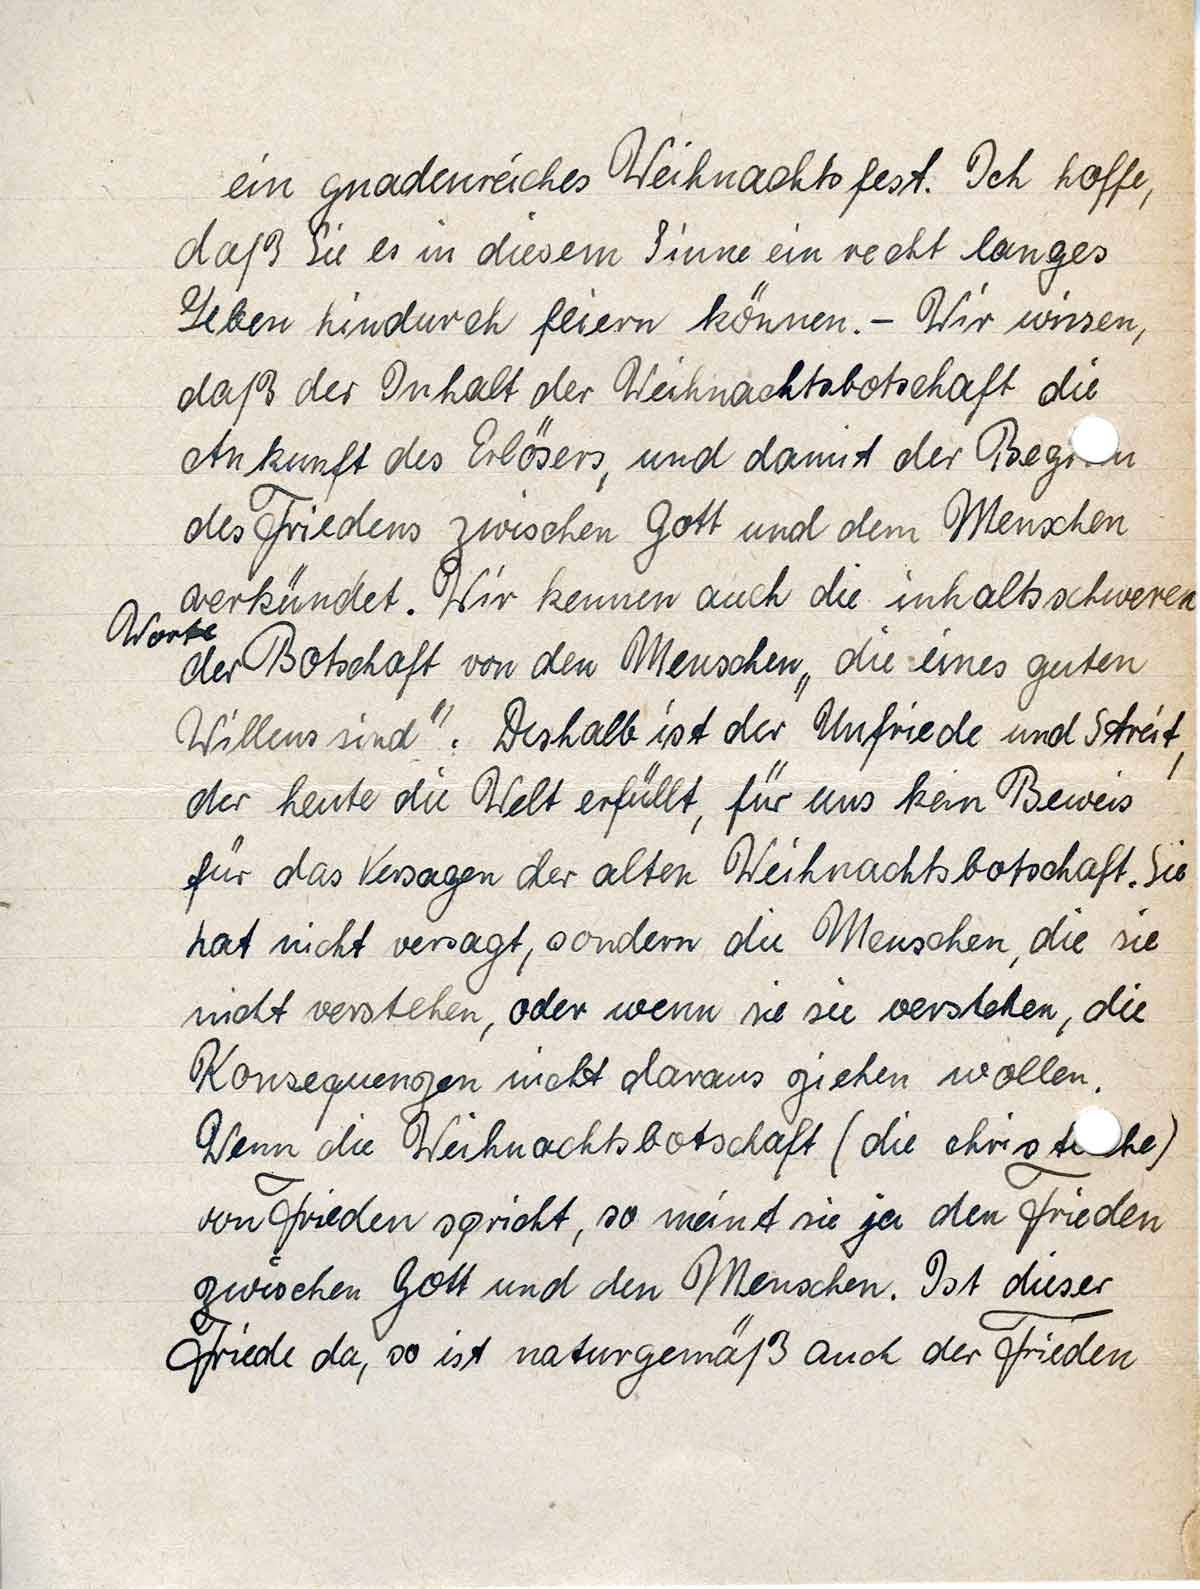 ein gnadenreiches Weihnachtsfest. Ich hoffe,
daß Sie es in diesem Sinne ein recht langes
Leben hindurch feiern können. – Wir wissen,
daß der Inhalt der Weihnachtsbotschaft die
Ankunft des Erlösers, und damit der Beginn
des Friedens zwischen Gott und dem Menschen
verkündet. Wir kennen auch die inhaltsschweren
Worte
der Botschaft von den Menschen „die eines guten
Willens sind". Deshalb ist der Unfriede und Streit,
der heute die Welt erfüllt, für uns kein Beweis
für das Versagen der alten Weihnachtsbotschaft. Sie
hat nicht versagt, sondern die Menschen, die sie
nicht verstehen, oder wenn sie sie verstehen, die
Konsequenzen nicht daraus ziehen wollen.
Wenn die Weihnachtsbotschaft (die christliche)
von Frieden spricht, so meint sie ja den Frieden
zwischen Gott und den Menschen. Ist dieser
Friede da, so ist naturgemäß auch der Frieden